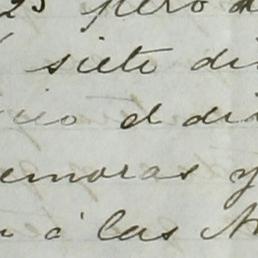 25 pero
siete di
el di
emoras y
á las